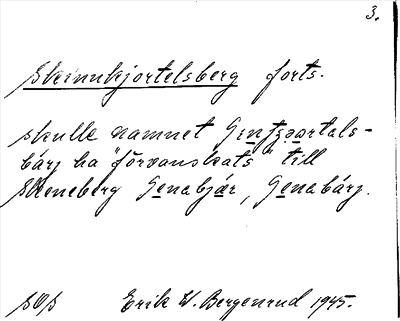 3.
Skinnkjortelsberg forts.
skulle namnet
bárj ha "förvanskats" till
Skeneberg Genabjár, Genabárj.
SOS Erik W. Bergenrud 1945.